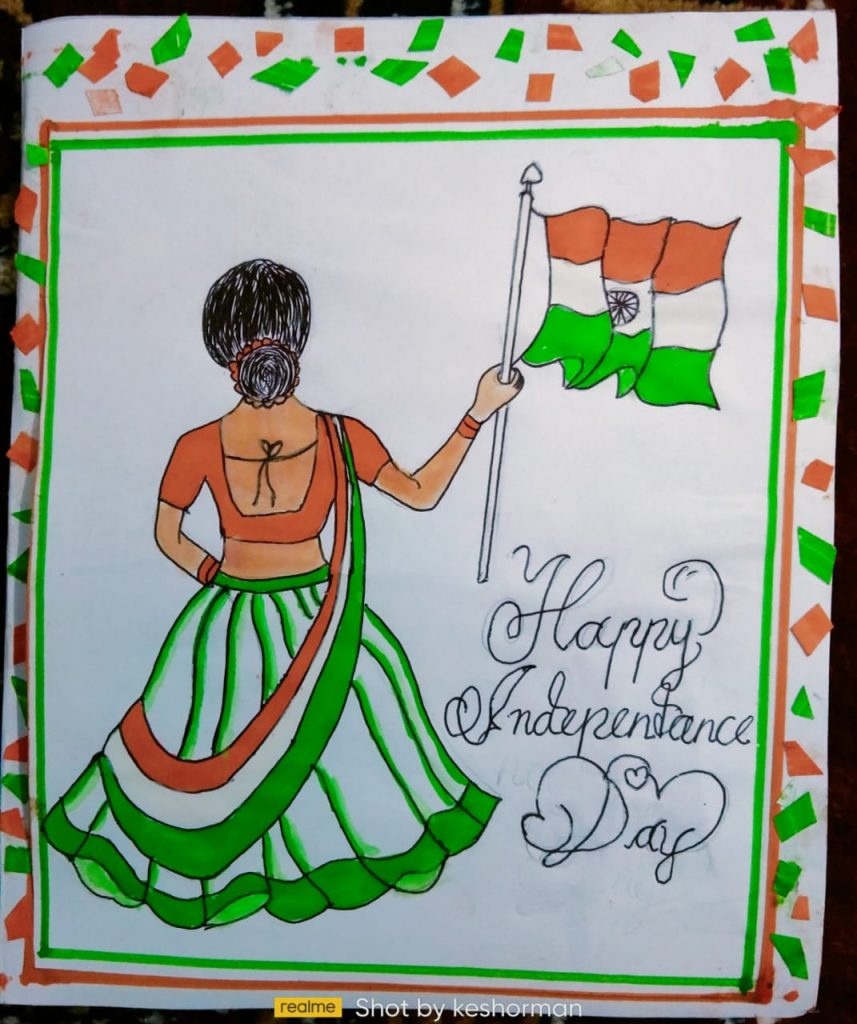 Happy
Independance
Day
realme Shot by keshorman